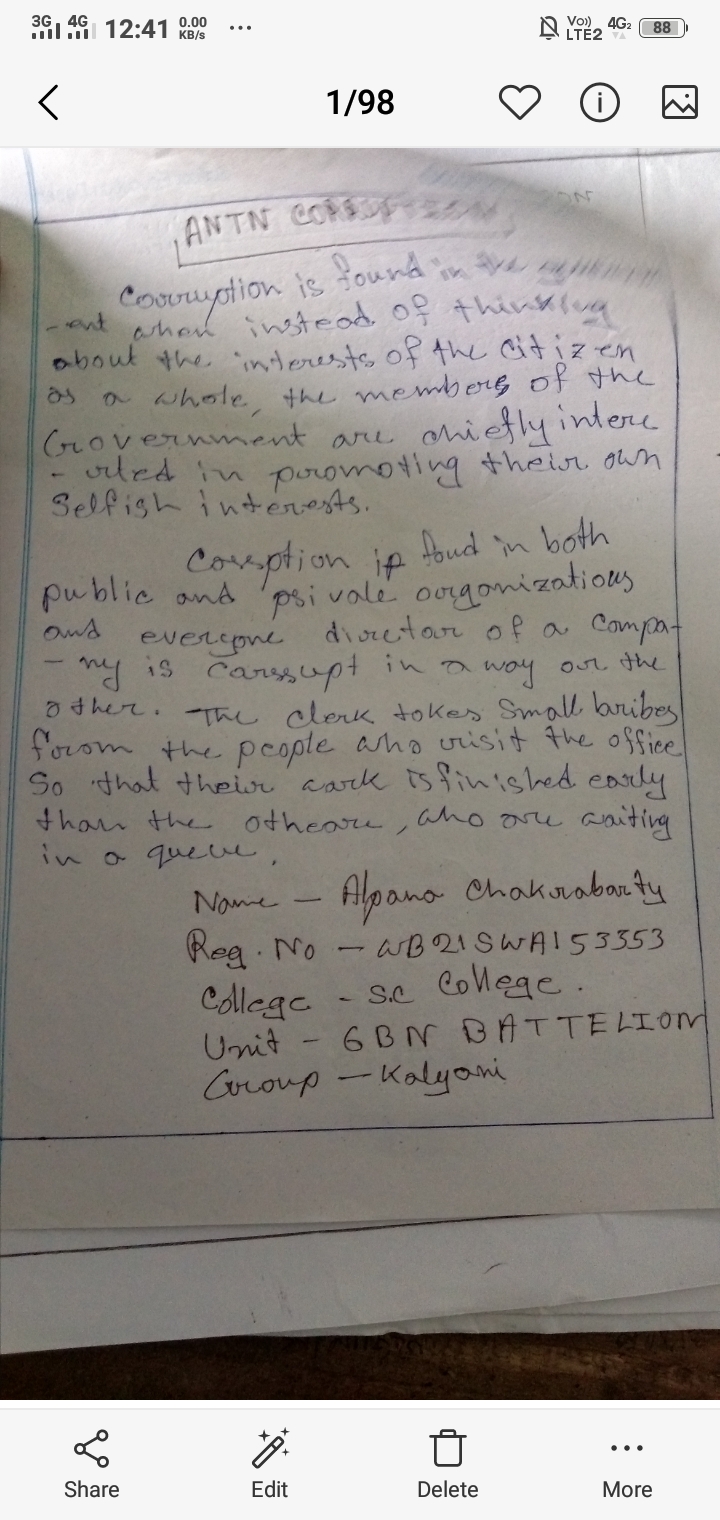 3G 4G 12:41 0.00 KB/s ... Vo)) LTE2 4G2 88
1/98
ANTN CORRUPTION
Corruption is found in the
-ent when instead of thinking
about the interests of the citizen
as a whole, the members of the
Government are chiefly intere
- sted in promoting their own
Selfish interests.
Corrsption is foud in both
public and psi vale organizations
and everyone director of a Compa-
- ny is carssupt in a way or the
other. The clerk takes Small bribes
from the people who visit the office
So that their work is finished early
than the otheare, who are waiting
in a queue.
Name - Alpana Chakrabarty
Reg. No - WB21SWA153353
College - S.C College.
Unit - 6BN BATTELION
Group - Kalyani
Share Edit Delete More